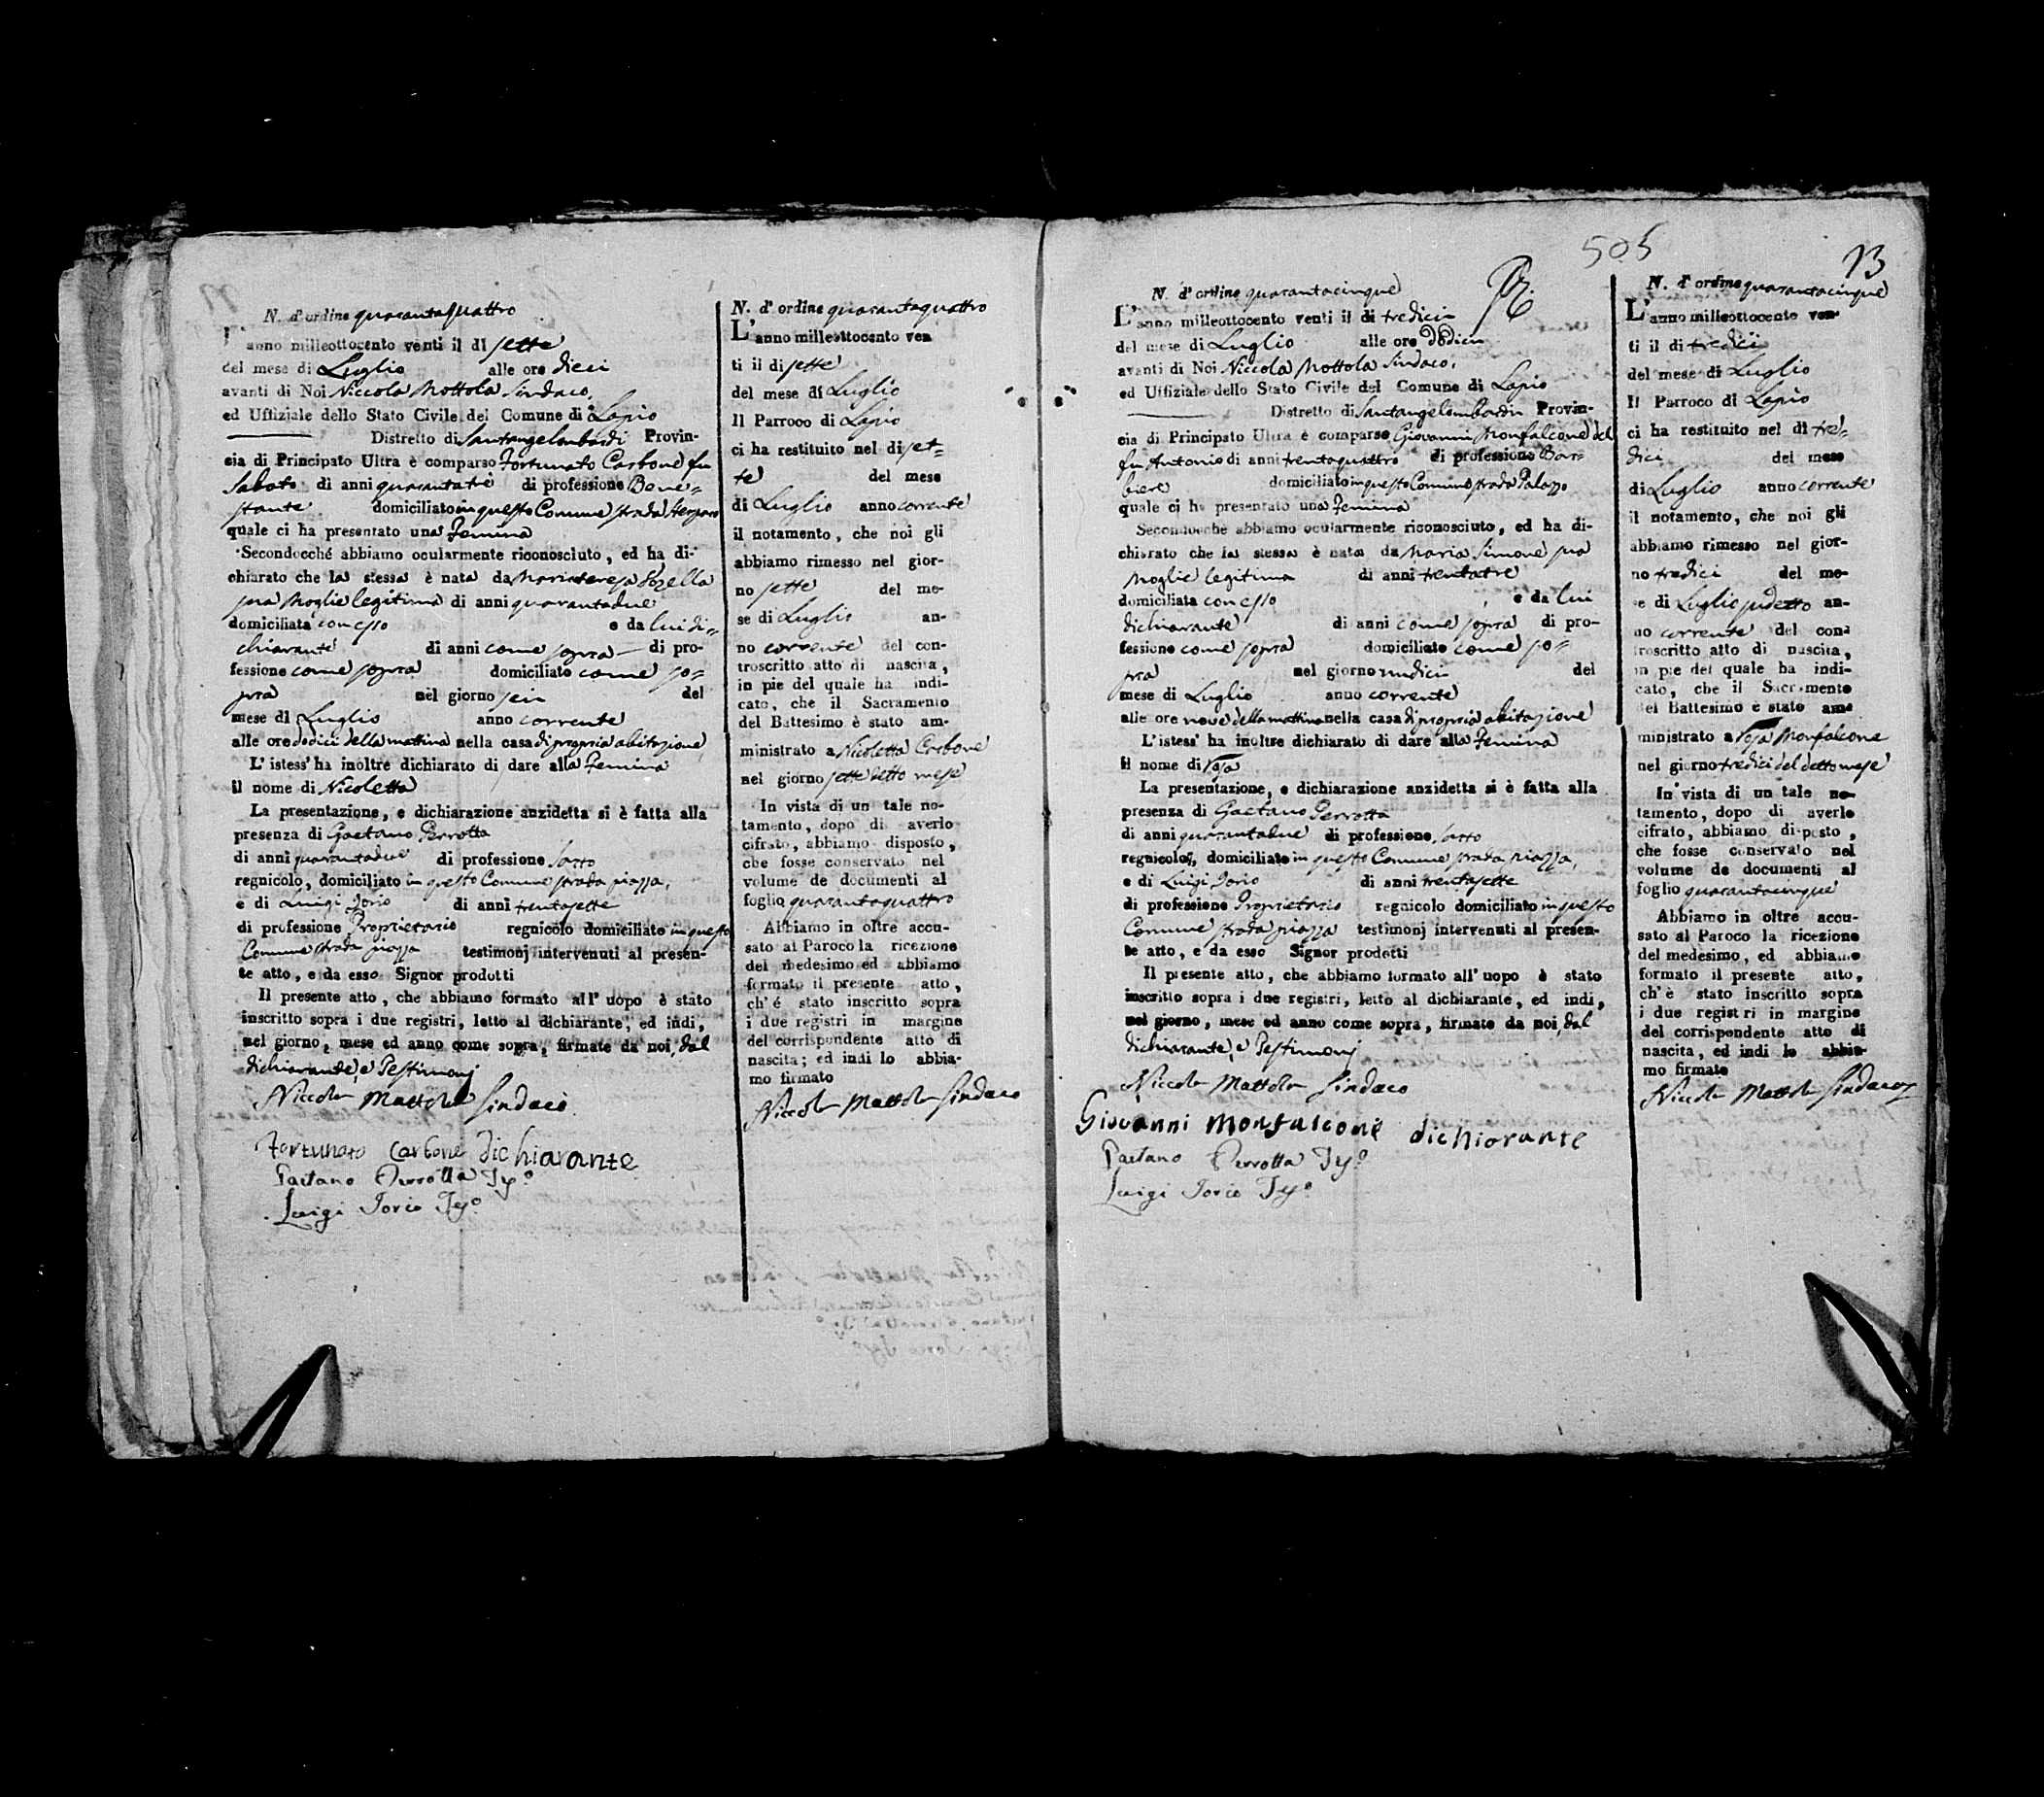 N. d'ordine quarantaquattro
L'anno milleottocento venti il dì sette
del mese di Luglio alle ore dieci
avanti di Noi Niccola Mottola Sindaco,
ed Uffiziale dello Stato Civile del Comune di Lapio
Distretto di Santangelombardi Provin-
cia di Principato Ultra è comparso Fortunato Carbone fu
Sabato di anni quarantatre di professione Bene=
stante domiciliato in questo Comune strada
quale ci ha presentato una Femina
Secondocché abbiamo ocularmente riconosciuto, ed ha di-
chiarato che la stessa è nata da Mariateresa
sua Moglie legitima di anni quarantadue
domiciliata con esso e da lui di=
chiarante di anni come sopra di pro-
fessione come sopra domiciliato come so=
pra nel giorno sei del
mese di Luglio anno corrente
alle ore dodici della mattina nella casa di propria abitazione
L'istess' ha inoltre dichiarato di dare alla Femina
il nome di Nicoletta
La presentazione, e dichiarazione anzidetta si è fatta alla
presenza di Gaetano Perrotta
di anni quarantadue di professione Sarto
regnicolo, domiciliato in questo Comune strada piazza,
e di Luigi Iorio di anni trentasette
di professione Proprietario regnicolo domiciliato in questo
Comune strada piazza testimonj intervenuti al presen-
te atto, e da esso Signor prodotti
Il presente atto, che abbiamo formato all' uopo è stato
inscritto sopra i due registri, letto al dichiarante, ed indi,
nel giorno, mese ed anno come sopra, firmato da noi, dal
dichiarante, e Testimonj
Niccola Mottola Sindaco
Fortunato Carbone dichiarante
Gaetano Perrotta Tes.o
Luigi Iorio Tes.o
N. d'ordine quarantaquattro
L'anno milleottocento ven
ti il di sette
del mese di Luglio
Il Parroco di Lapio
ci ha restituito nel dì set-
te del mese
di Luglio anno corrente
il notamento, che noi gli
abbiamo rimesso nel gior-
no sette del me-
se di Luglio an-
no corrente del con-
troscritto atto di nascita,
in pie del quale ha indi-
cato, che il Sacramento
del Battesimo è stato am-
ministrato a Nicoletta Carbone
nel giorno sette detto mese
In vista di un tale no-
tamento, dopo di averlo
cifrato, abbiamo disposto,
che fosse conservato nel
volume de documenti al
foglio quarantaquattro
Abbiamo in oltre accu-
sato al Paroco la ricezione
del medesimo ed abbiamo
formato il presente atto,
ch'é stato inscritto sopra
i due registri in margine
del corrispondente atto di
nascita; ed indi lo abbia-
mo firmato
Niccola Mottola Sindaco
505
73
N. d'ordine quarantacinque
L'anno milleottocento venti il di tredici
del mese di Luglio alle ore dodici
avanti di Noi Niccola Mottola Sindaco,
ed Uffiziale dello Stato Civile del Comune di Lapio
Distretto di Santangelombardi Provin-
cia di Principato Ultra è comparso Giovanni Monfalcone del
fu Antonio di anni trentaquattro di professione Bar=
biere domiciliato in questo Comune strada Palazzo
quale ci ha presentato una Femina
Secondocchè abbiamo ocularmente riconosciuto, ed ha di-
chiarato che la stessa è nata da Maria Simone sua
Moglie legitima di anni trentatre
domiciliata con esso e da lui
dichiarante di anni come sopra di pro-
fessione come sopra domiciliato come so=
pra nel giorno undici del
mese di Luglio anno corrente
alle ore nove della mattina nella casa di propria abitazione
L'istess' ha inoltre dichiarato di dare alla Femina
il nome di Rosa
La presentazione, e dichiarazione anzidetta si è fatta alla
presenza di Gaetano Perrotta
di anni quarantadue di professione Sarto
regnicolo, domiciliato in questo Comune strada piazza,
e di Luigi Iorio di anni trentasette
di professione Proprietario regnicolo domiciliato in questo
Comune strada piazza testimonj intervenuti al presen-
te atto, e da esso Signor prodotti
Il presente atto, che abbiamo formato all' uopo è stato
inscritto sopra i due registri, letto al dichiarante, ed indi,
nel giorno, mese ed anno come sopra, firmato da noi, dal
dichiarante, e Testimonj
Niccola Mottola Sindaco
Giovanni Monfalcone dichiorante
Gaetano Perrotta Tes.o
Luigi Iorio Tes.o
N. d'ordine quarantacinque
L'anno milleottocento ven-
ti il di tredici
del mese di Luglio
Il Parroco di Lapio
ci ha restituito nel dì tre=
dici del mese
di Luglio anno corrente
il notamento, che noi gli
abbiamo rimesso nel gior-
no tredici del me-
se di Luglio sudetto an-
no corrente del con-
troscritto atto di nascita,
in pie del quale ha indi-
cato, che il Sacramento
del Battesimo è stato am-
ministrato a Rosa Monfalcone
nel giorno tredici del detto mese
In vista di un tale no-
tamento, dopo di averlo
cifrato, abbiamo disposto,
che fosse conservato nel
volume de documenti al
foglio quarantacinque
Abbiamo in oltre accu-
sato al Paroco la ricezione
del medesimo, ed abbiamo
formato il presente atto,
ch'è stato inscritto sopra
i due registri in margine
del corrispondente atto di
nascita, ed indi lo abbia-
mo firmato
Niccola Mottola Sindaco